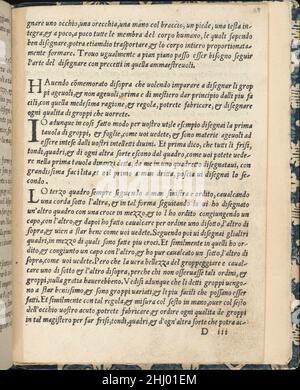 gnare uno occhio, una orecchia, una mano col braccio, un piede, una testa in
tegra, & a poco, a poco tutte le membra del corpo humano, le quali sapendo
ben disegnare, potra etiamdio trasportare, & lo corpo intiero proportionata
mente formare. Trovo ugualmente a pian piano passo esser bisogno seguir
l'arte del disegnare con precetti in quella ammaestrevoli.
HAuendo cōmemorato disopra che volendo imparare a disegnar li grop
pi ageuoli, & non ageuoli, prima è mestiero dar principio dalli piu fa
cili, con quella medesima ragione, & regola, potrete fabricare, & disegnare
ogni qualita di groppi che vorrete.
IO adunque in cosi fatto modo per vostro utile essempio disegnai la prima
tauola di groppi, & foglie, come uoi uedete, & sono materie ageuoli ad
essere intese dalli vostri intelletti diuini. Et prima dico, che tutti li frisi,
tondi, quadri, & di ogni altra sorte essendo dal quadro, come uoi potete ue
dere nella prima tauola
grandissima facilita, & 
condo.
LO terzo quadro sempre seguendo a man sinistra e ordito, caualcando
una corda sotto l'altra, & in tal forma seguitando
un'altro quadro con una croce in mezzo, & io l'ho ordito congiungendo un
capo, con l'altro, & dapoi ho fatto caualcare per ordine uno disotto, l'altro di
sopra, & uien a star bene come uoi uedete. Seguendo poi ui disegnai gli altri
quadri, in mezzo di quali sono fatte piu croci. Et similmente in quelli ho or
dito, & congiunto un capo con l'altro, & ho pur caualcato un sotto, l'altro di
sopra, come uedete. Perche la uera bellezza del groppeggiare è caual-
care uno di sotto & l'altro disopra, perche chi non osseruasse tali ordini, &
groppi, nulla gratia hauerebbeno. Vedisi adunque che li detti groppi uengo-
no a star benissimo, & sono groppi uariati & li piu facili che possano esser
fatti. Et finalmente con tal regola, & misura col sesto in mano, ouer col sesto
dell'occhio uostro acuto potrete fabricare & ordire ogni qualita de groppi
in tal magistero per far frisi, tondi, quadri, & d'ogni altra sorte che potra ac-
D iii